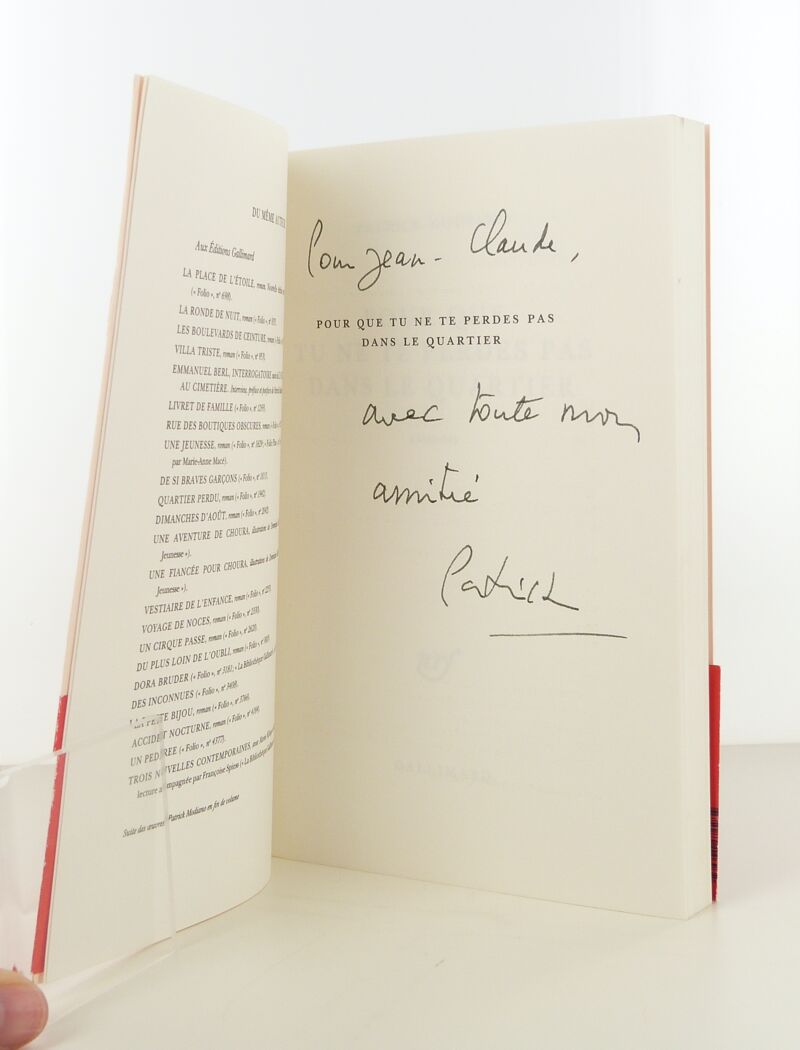 DU MÊME AUTEUR
Aux Éditions Gallimard
LA PLACE DE L'ÉTOILE, roman. Nouvelle
(« Folio », nº 698).
LA RONDE DE NUIT, roman (« Folio »
LES BOULEVARDS DE CEINTURE, roman
VILLA TRISTE, roman (« Folio », nº 953).
EMMANUEL BERL, INTERROGATOIRE
AU CIMETIÈRE. Interview, préface et postface de
LIVRET DE FAMILLE (« Folio », nº 1293).
RUE DES BOUTIQUES OBSCURES, roman
UNE JEUNESSE, roman (« Folio », nº 1629 ; « Folio Plus »
par Marie-Anne Macé).
DE SI BRAVES GARÇONS (« Folio », nº 1811).
QUARTIER PERDU, roman (« Folio », nº 1942).
DIMANCHES D'AOÛT, roman (« Folio », nº 2042).
UNE AVENTURE DE CHOURA, illustrations de
Jeunesse »).
UNE FIANCÉE POUR CHOURA, illustrations de
Jeunesse »).
VESTIAIRE DE L'ENFANCE, roman (« Folio »,
VOYAGE DE NOCES, roman (« Folio », nº 2330).
UN CIRQUE PASSE, roman (« Folio », nº 2628).
DU PLUS LOIN DE L'OUBLI, roman (« Folio »,
DORA BRUDER (« Folio », nº 3181 ; « La Bibliothèque
DES INCONNUES (« Folio », nº 3408).
LA PETITE BIJOU, roman (« Folio », nº 3766).
ACCIDENT NOCTURNE, roman (« Folio », nº 4184).
UN PEDIGREE (« Folio », nº 4377).
TROIS NOUVELLES CONTEMPORAINES, avec
lecture accompagnée par Françoise Spiess (« La Bibliothèque
Suite des œuvres de Patrick Modiano en fin de volume
Pour Jean-Claude,
POUR QUE TU NE TE PERDES PAS
DANS LE QUARTIER
avec toute mon
amitié
Patrick
TU NE TE PERDES PAS
DANS LE QUARTIER
nrf
GALLIMARD